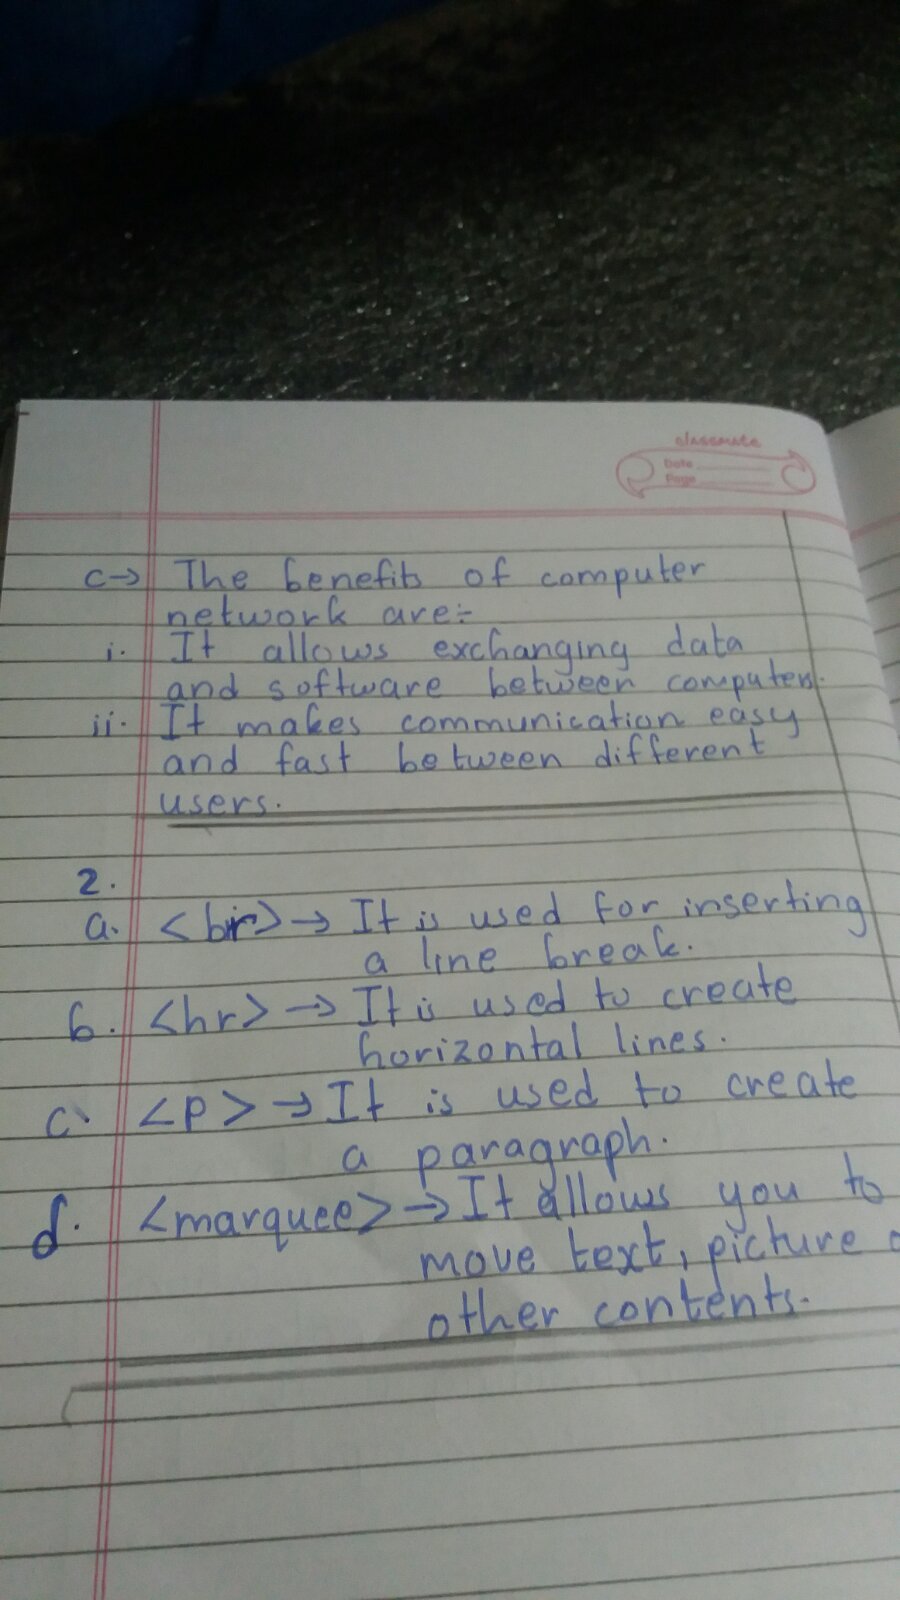 classmate
Date
Page
c→ The benefits of computer
network are:-
i. It allows exchanging data
and software between computers.
ii. It makes communication easy
and fast between different
users.
2.
a. <br> → It is used for inserting
a line break.
b. <hr> → It is used to create
horizontal lines.
c. <p> → It is used to create
a paragraph.
d. <marquee> → It allows you to
move text, picture
other contents.